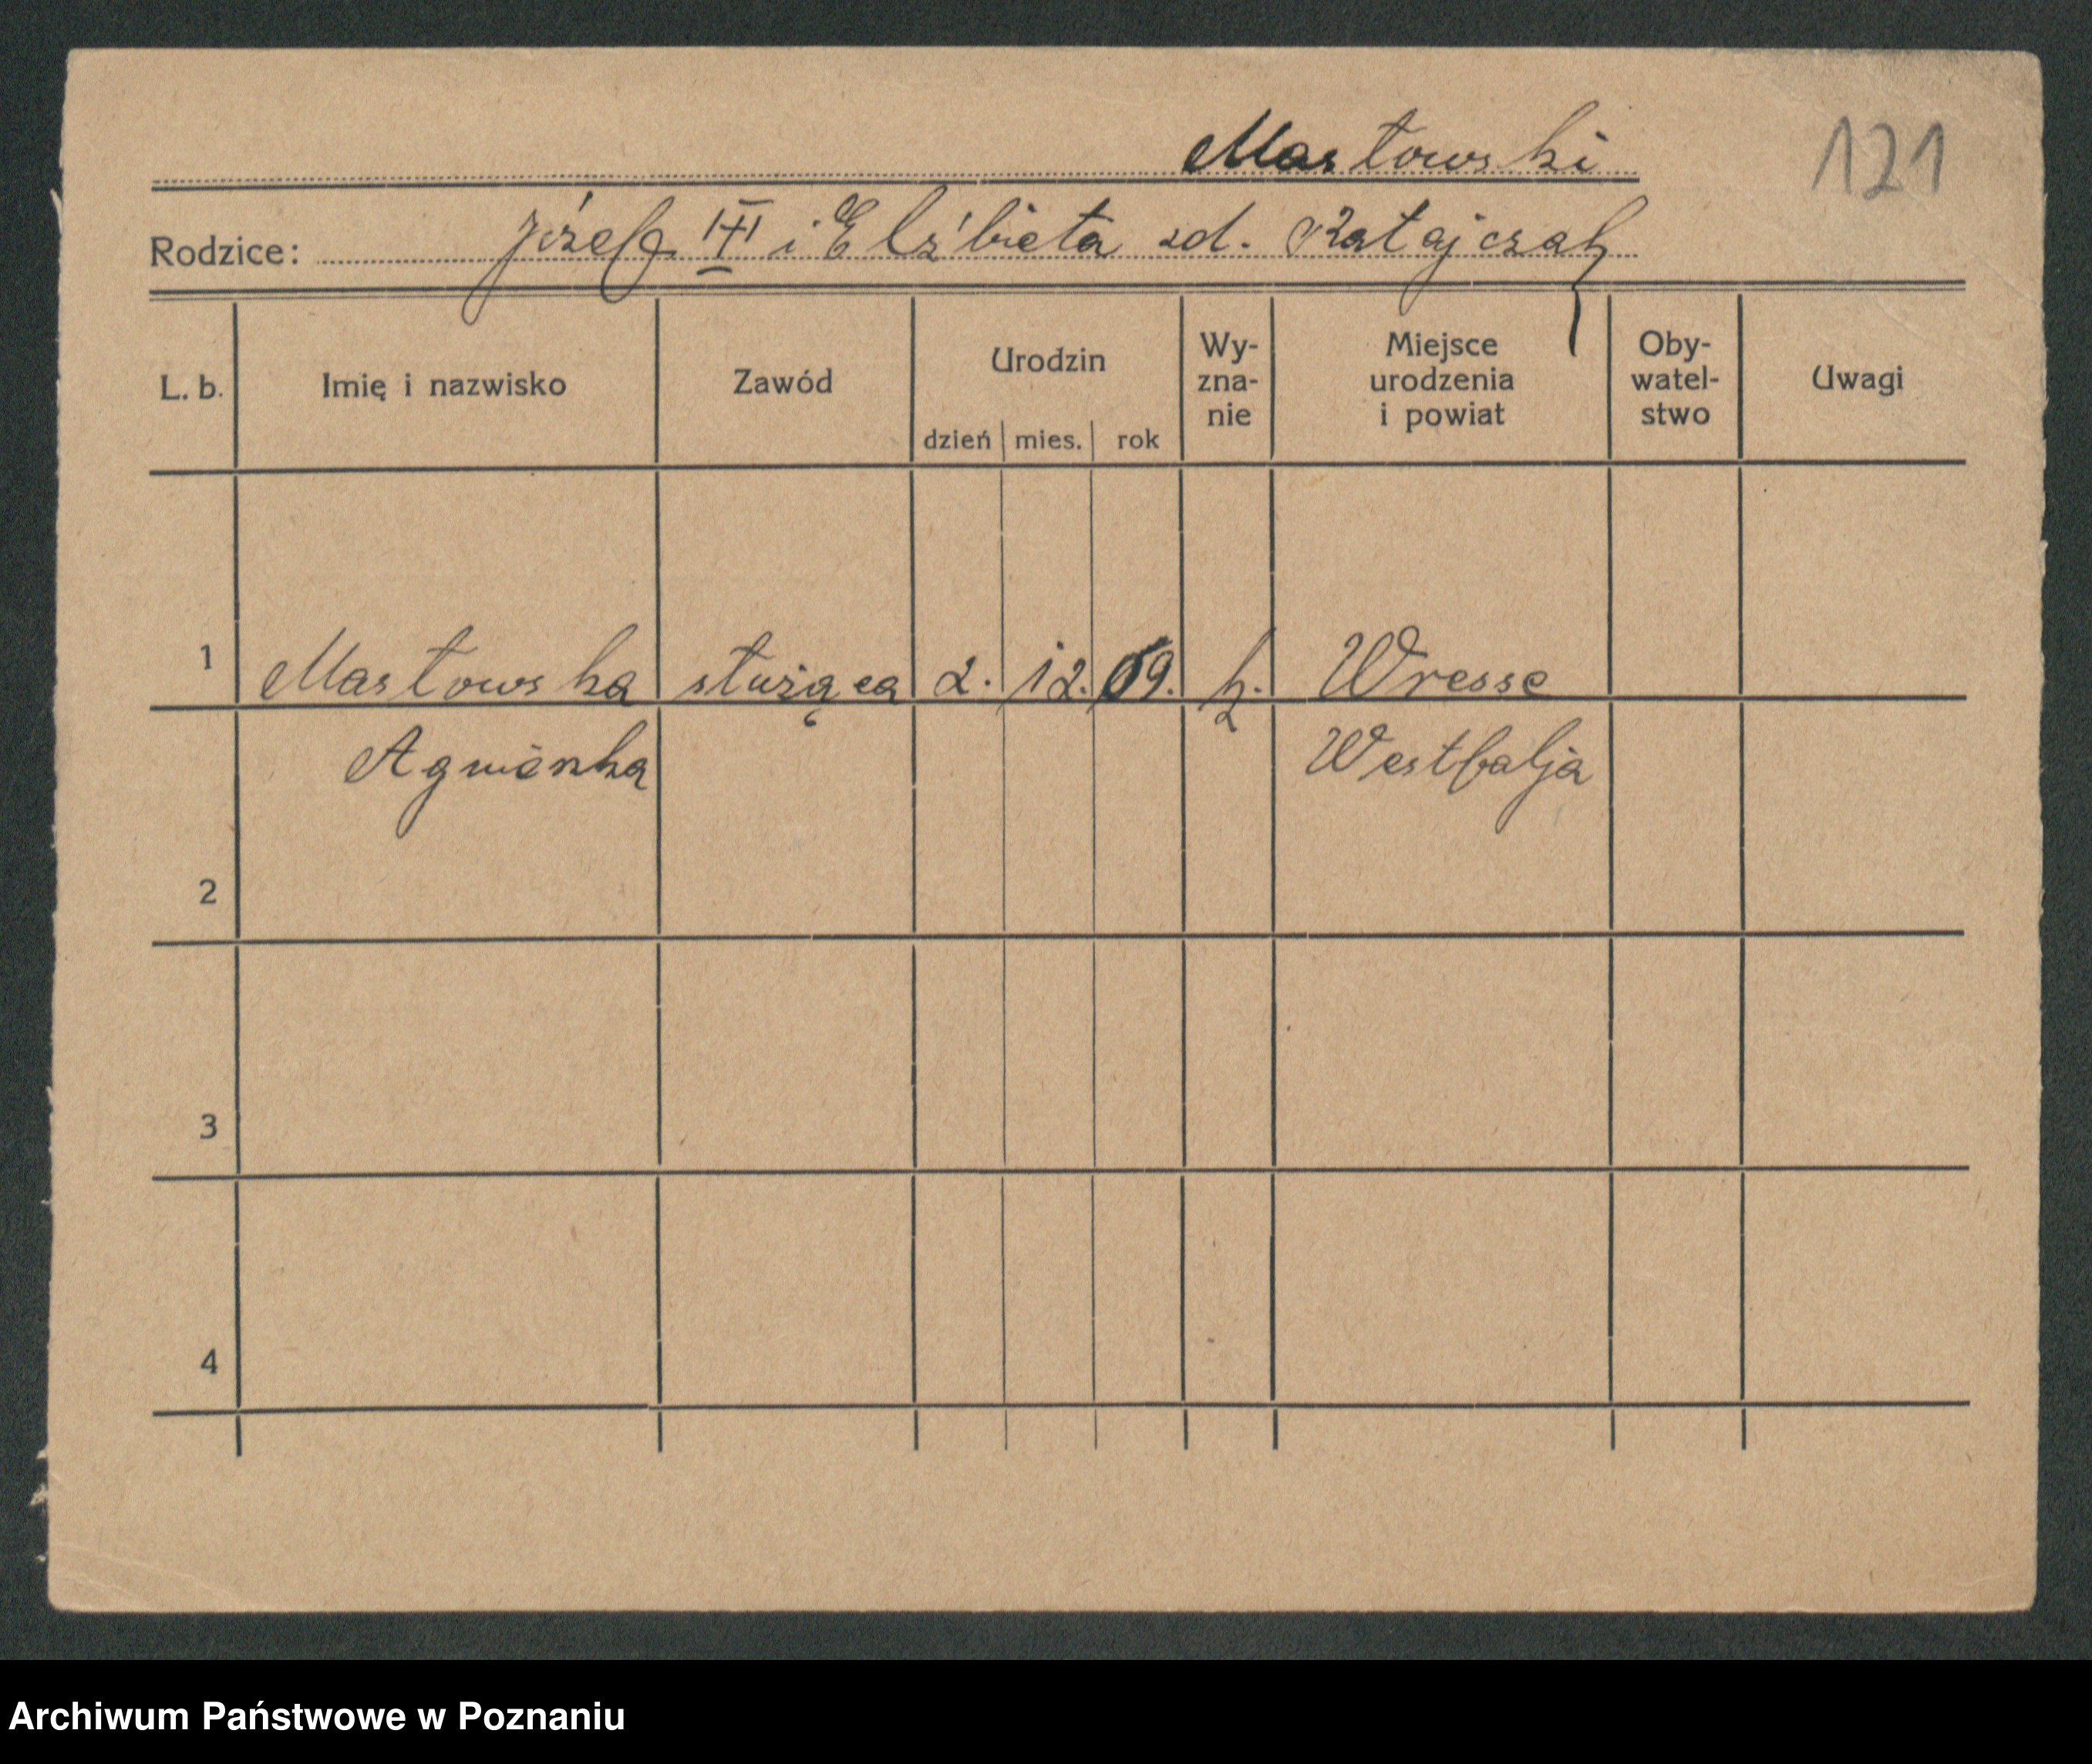 Masłowski
121
Rodzice: Józef III i Elżbieta zd. Ratajczak
L. b. Imię i nazwisko Zawód Urodzin dzień mies. rok Wy-zna-nie Miejsce urodzenia i powiat Oby-watel-stwo Uwagi
1 Masłowska służąca 2. 12. 09. k. Wresse
Agnieszka Westfalja
2
3
4
Archiwum Państwowe w Poznaniu